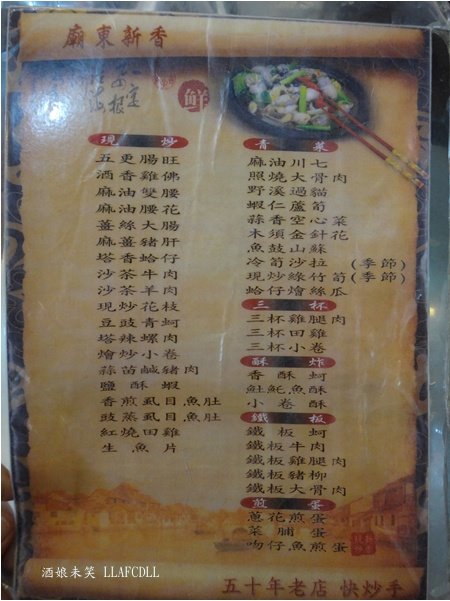 廟東新香
鮮
現炒
五更腸旺
酒香雞佛
麻油雙腰
麻油腰花
薑絲大腸
麻薑豬肝
塔香蛤仔
沙茶牛肉
沙茶羊肉
現炒花枝
豆豉青蚵
塔辣螺肉
燴炒小卷
蒜苗鹹豬肉
鹽酥蝦
香煎虱目魚肚
豉蒸虱目魚肚
紅燒田雞
生魚片
青菜
麻油川七
照燒大骨肉
野溪過貓
蝦仁蘆筍
蒜香空心菜
木須金針花
魚鼓山蘇
冷筍沙拉(季節)
現炒綠竹筍(季節)
蛤仔燴絲瓜
三杯
三杯雞腿肉
三杯田雞
三杯小卷
酥炸
香酥蚵
魠魚酥
小卷酥
鐵板
鐵板蚵
鐵板牛肉
鐵板雞腿肉
鐵板豬柳
鐵板大骨肉
煎蛋
蔥花煎蛋
菜脯蛋
吻仔魚煎蛋
五十年老店 快炒手
酒娘未笑 LLAFCDLL